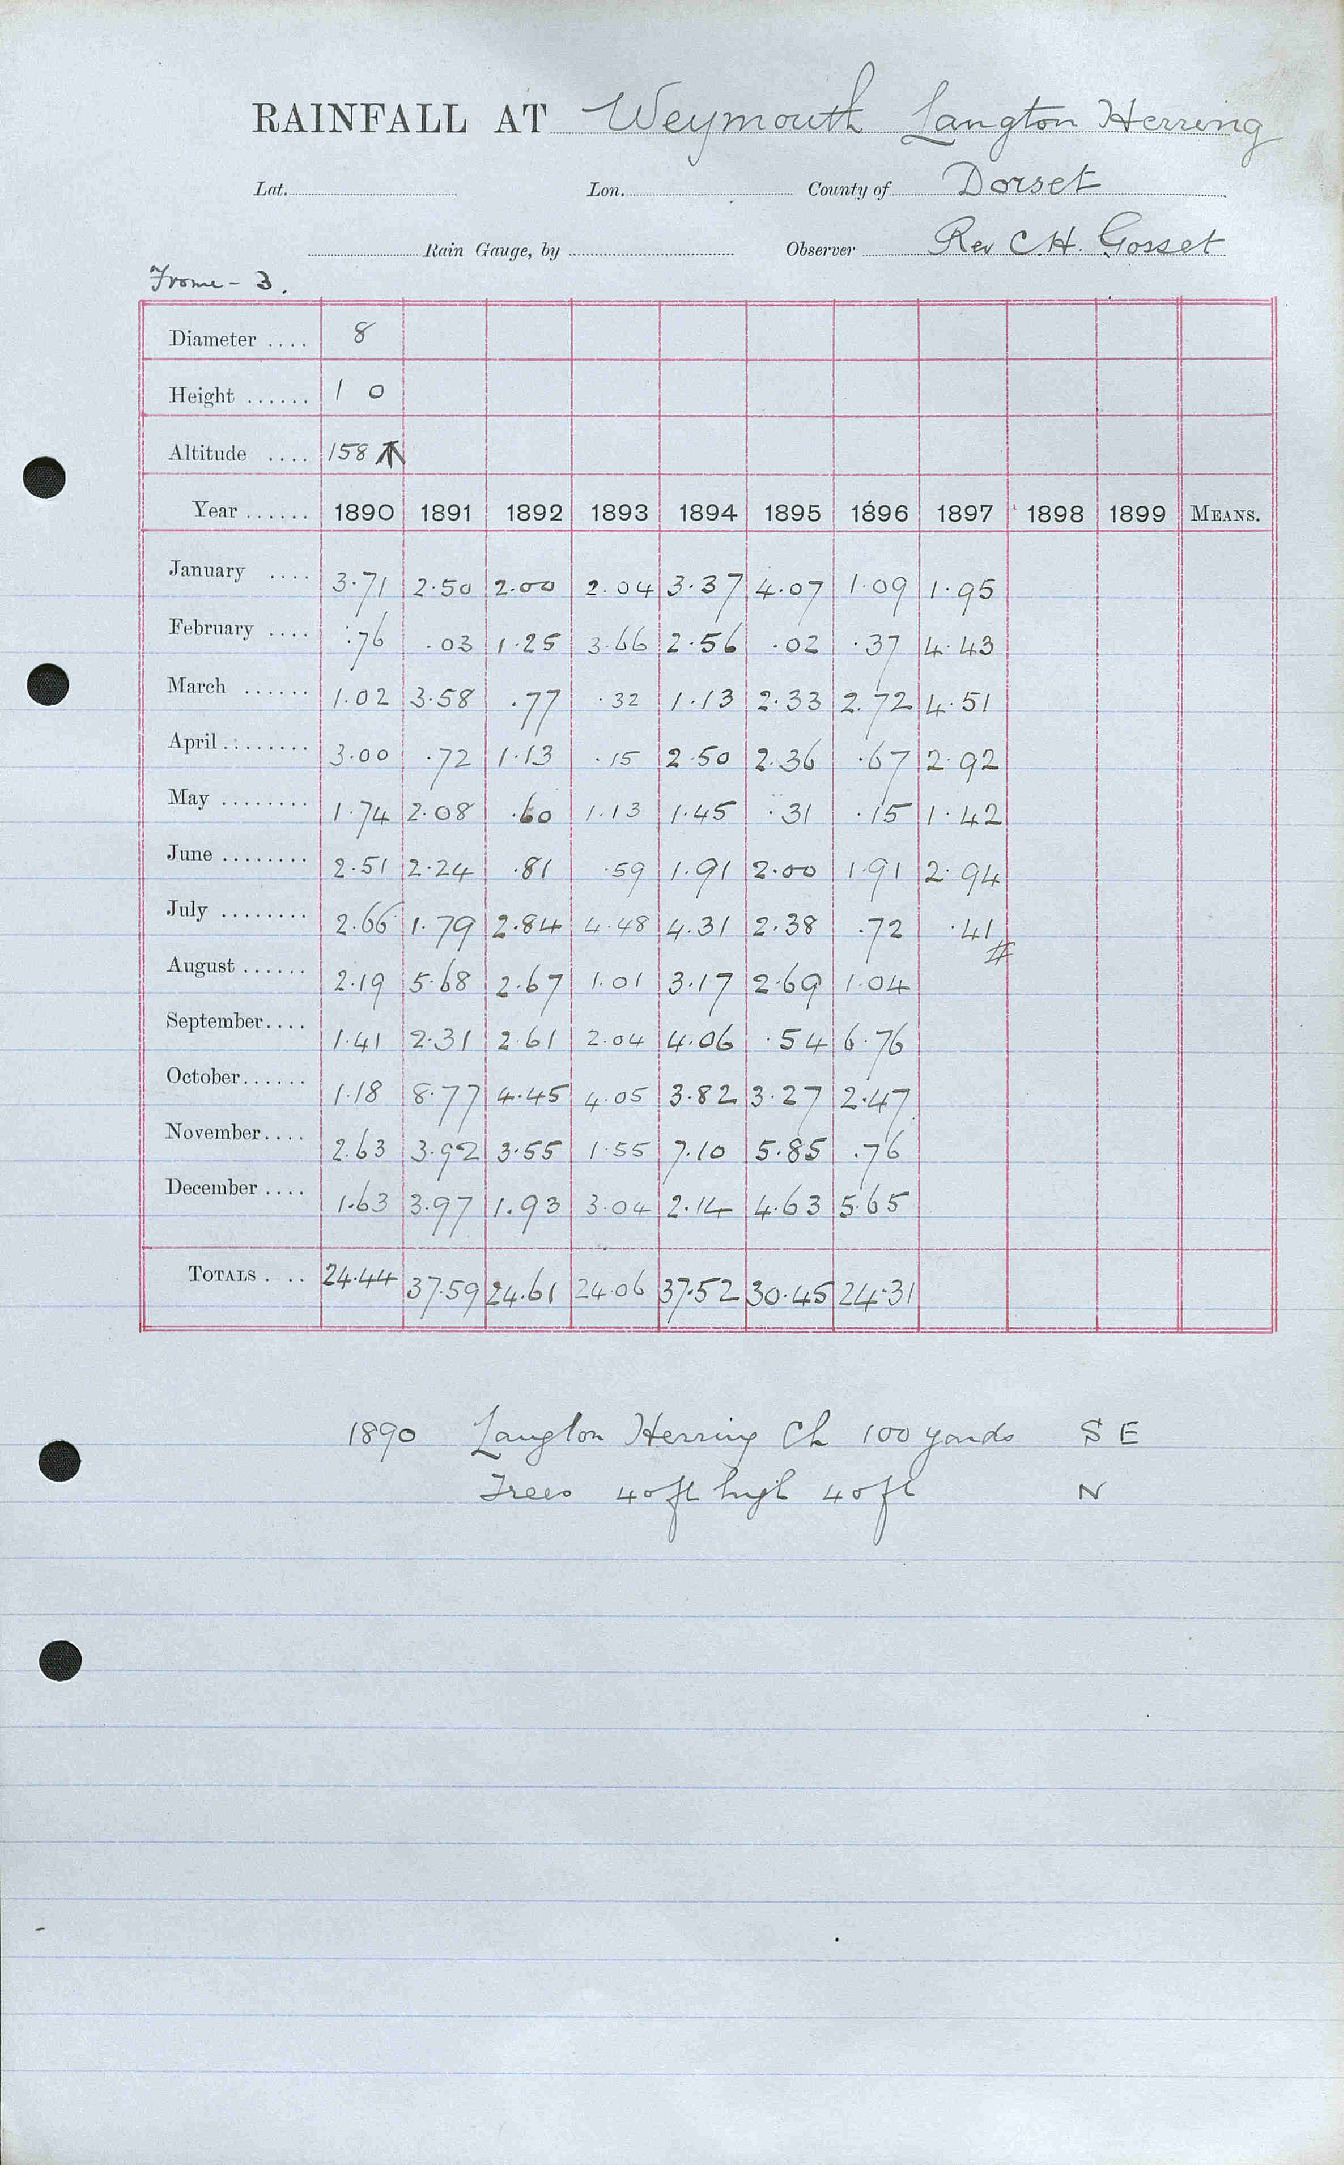 RAINFALL AT Weymouth Langton Herring
Lat. Lon. County of Dorset
Rain Gauge, by Observer Rev C H. Gosset
Frome - 3.
Diameter .... 8
Height ...... 1 0
Altitude .... 158
Year ...... 1890 1891 1892 1893 1894 1895 1896 1897 1898 1899 MEANS.
January .... 3.71 2.50 2.00 2.04 3.37 4.07 1.09 1.95
February .... .76 .03 1.25 3.66 2.56 .02 .37 4.43
March ...... 1.02 3.58 .77 .32 1.13 2.33 2.72 4.51
April ........ 3.00 .72 1.13 .15 2.50 2.36 .67 2.92
May ........ 1.74 2.08 .60 1.13 1.45 .31 .15 1.42
June ........ 2.51 2.24 .81 .59 1.91 2.00 1.91 2.94
July ........ 2.66 1.79 2.84 4.48 4.31 2.38 .72 .41 #
August ...... 2.19 5.68 2.67 1.01 3.17 2.69 1.04
September.... 1.41 2.31 2.61 2.04 4.06 .54 6.76
October...... 1.18 8.77 4.45 4.05 3.82 3.27 2.47
November.... 2.63 3.92 3.55 1.55 7.10 5.85 .76
December .... 1.63 3.97 1.93 3.04 2.14 4.63 5.65
TOTALS .... 24.44 37.59 24.61 24.06 37.52 30.45 24.31
1890 Langton Herring Ch 100 yards S E
Trees 40 ft high 40 ft N